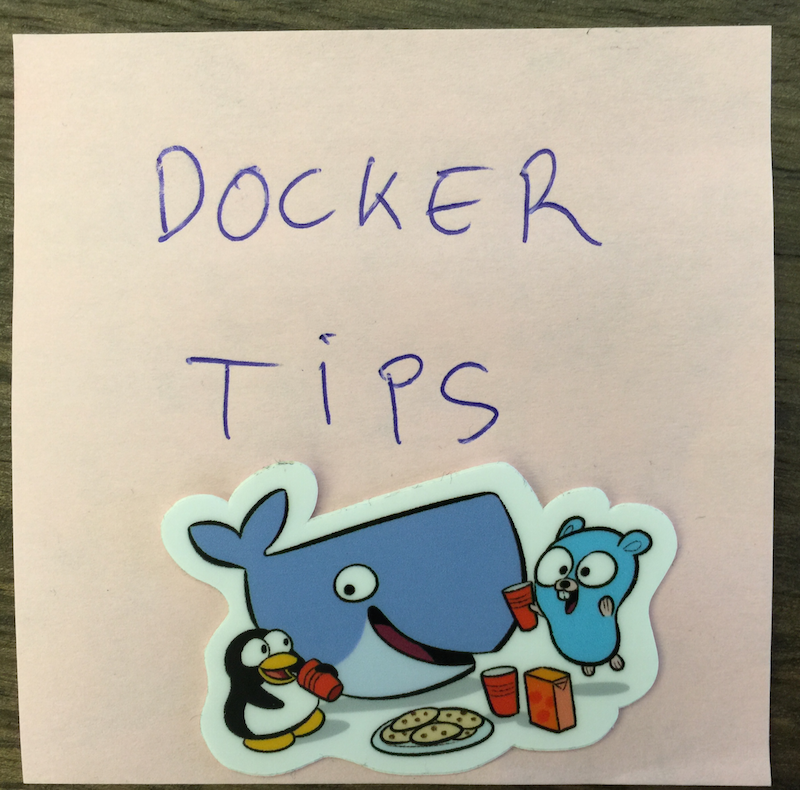 DOCKER
TiPS